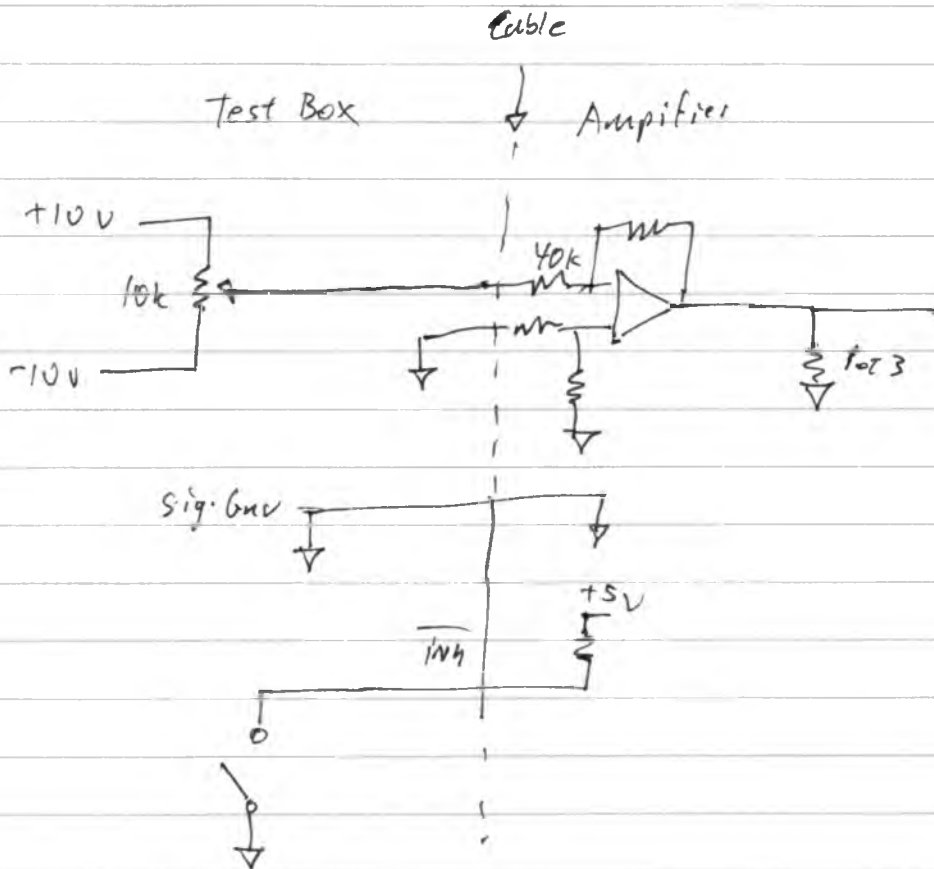 Cable
Test Box
Ampifier
+10 V
40k
10k
-10 V
Pot 3
Sig. Gnd
+5 V
INh